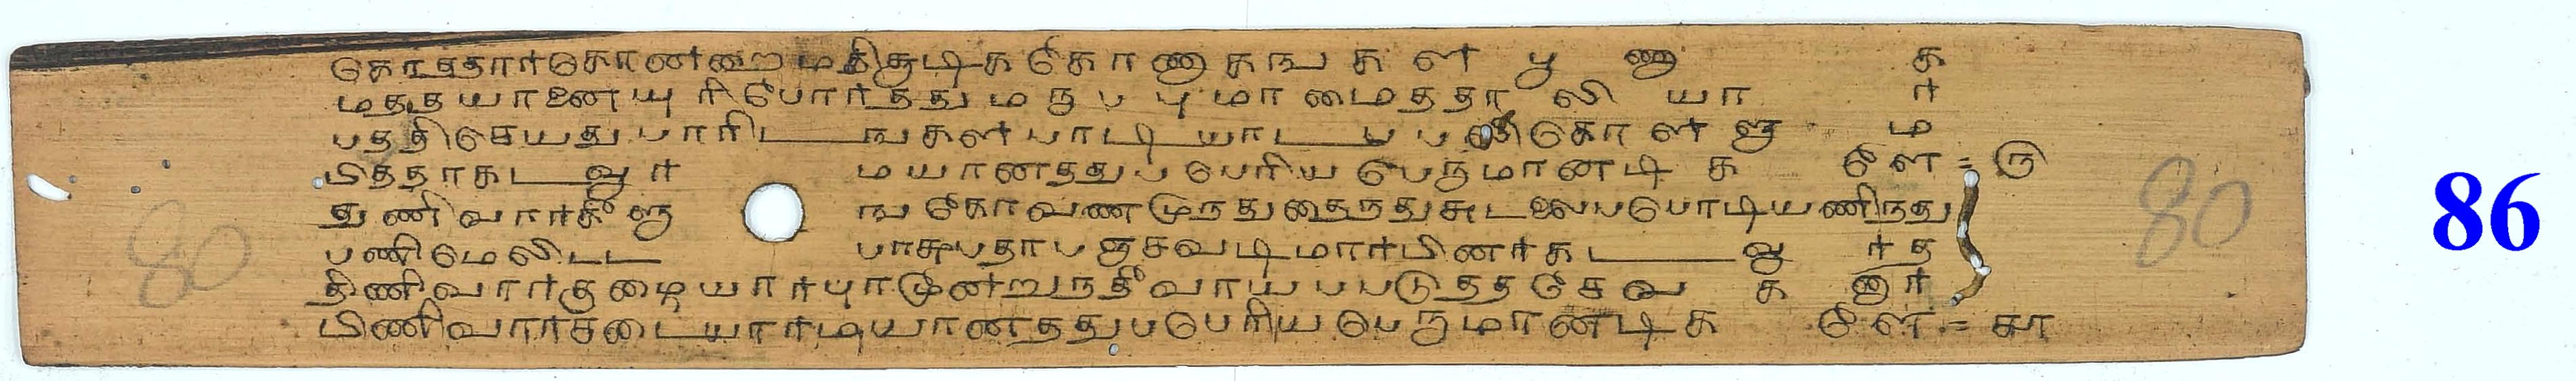 கொததார்கொணறைமதிகுடிககோணாகஙகள் பூணாக
மததயானையுரிபோர்ததுமருபபுமாமைததாலியார்
பததிசெயதுபாரிடஙகள்பாடியாடபபணிகொள்ளும
பிததர்கடவூர்மயானததுபபெரியபெருமானடிகளே = ௫
துணிவார்கீளுஙகோவணமுநதுதைநதுசுடலைபபொடியணிநது
பணிமேலிடடபாசுபதாபஞசவடிமார்பினர்கடவூர்த
திணிவார்குழையார்புரமூன்றுநதீவாயபபடுததசேவகனார்
பிணிவார்சடையார்மயானததுபபெரியபெருமானடிகளே = ௬
80
80
86